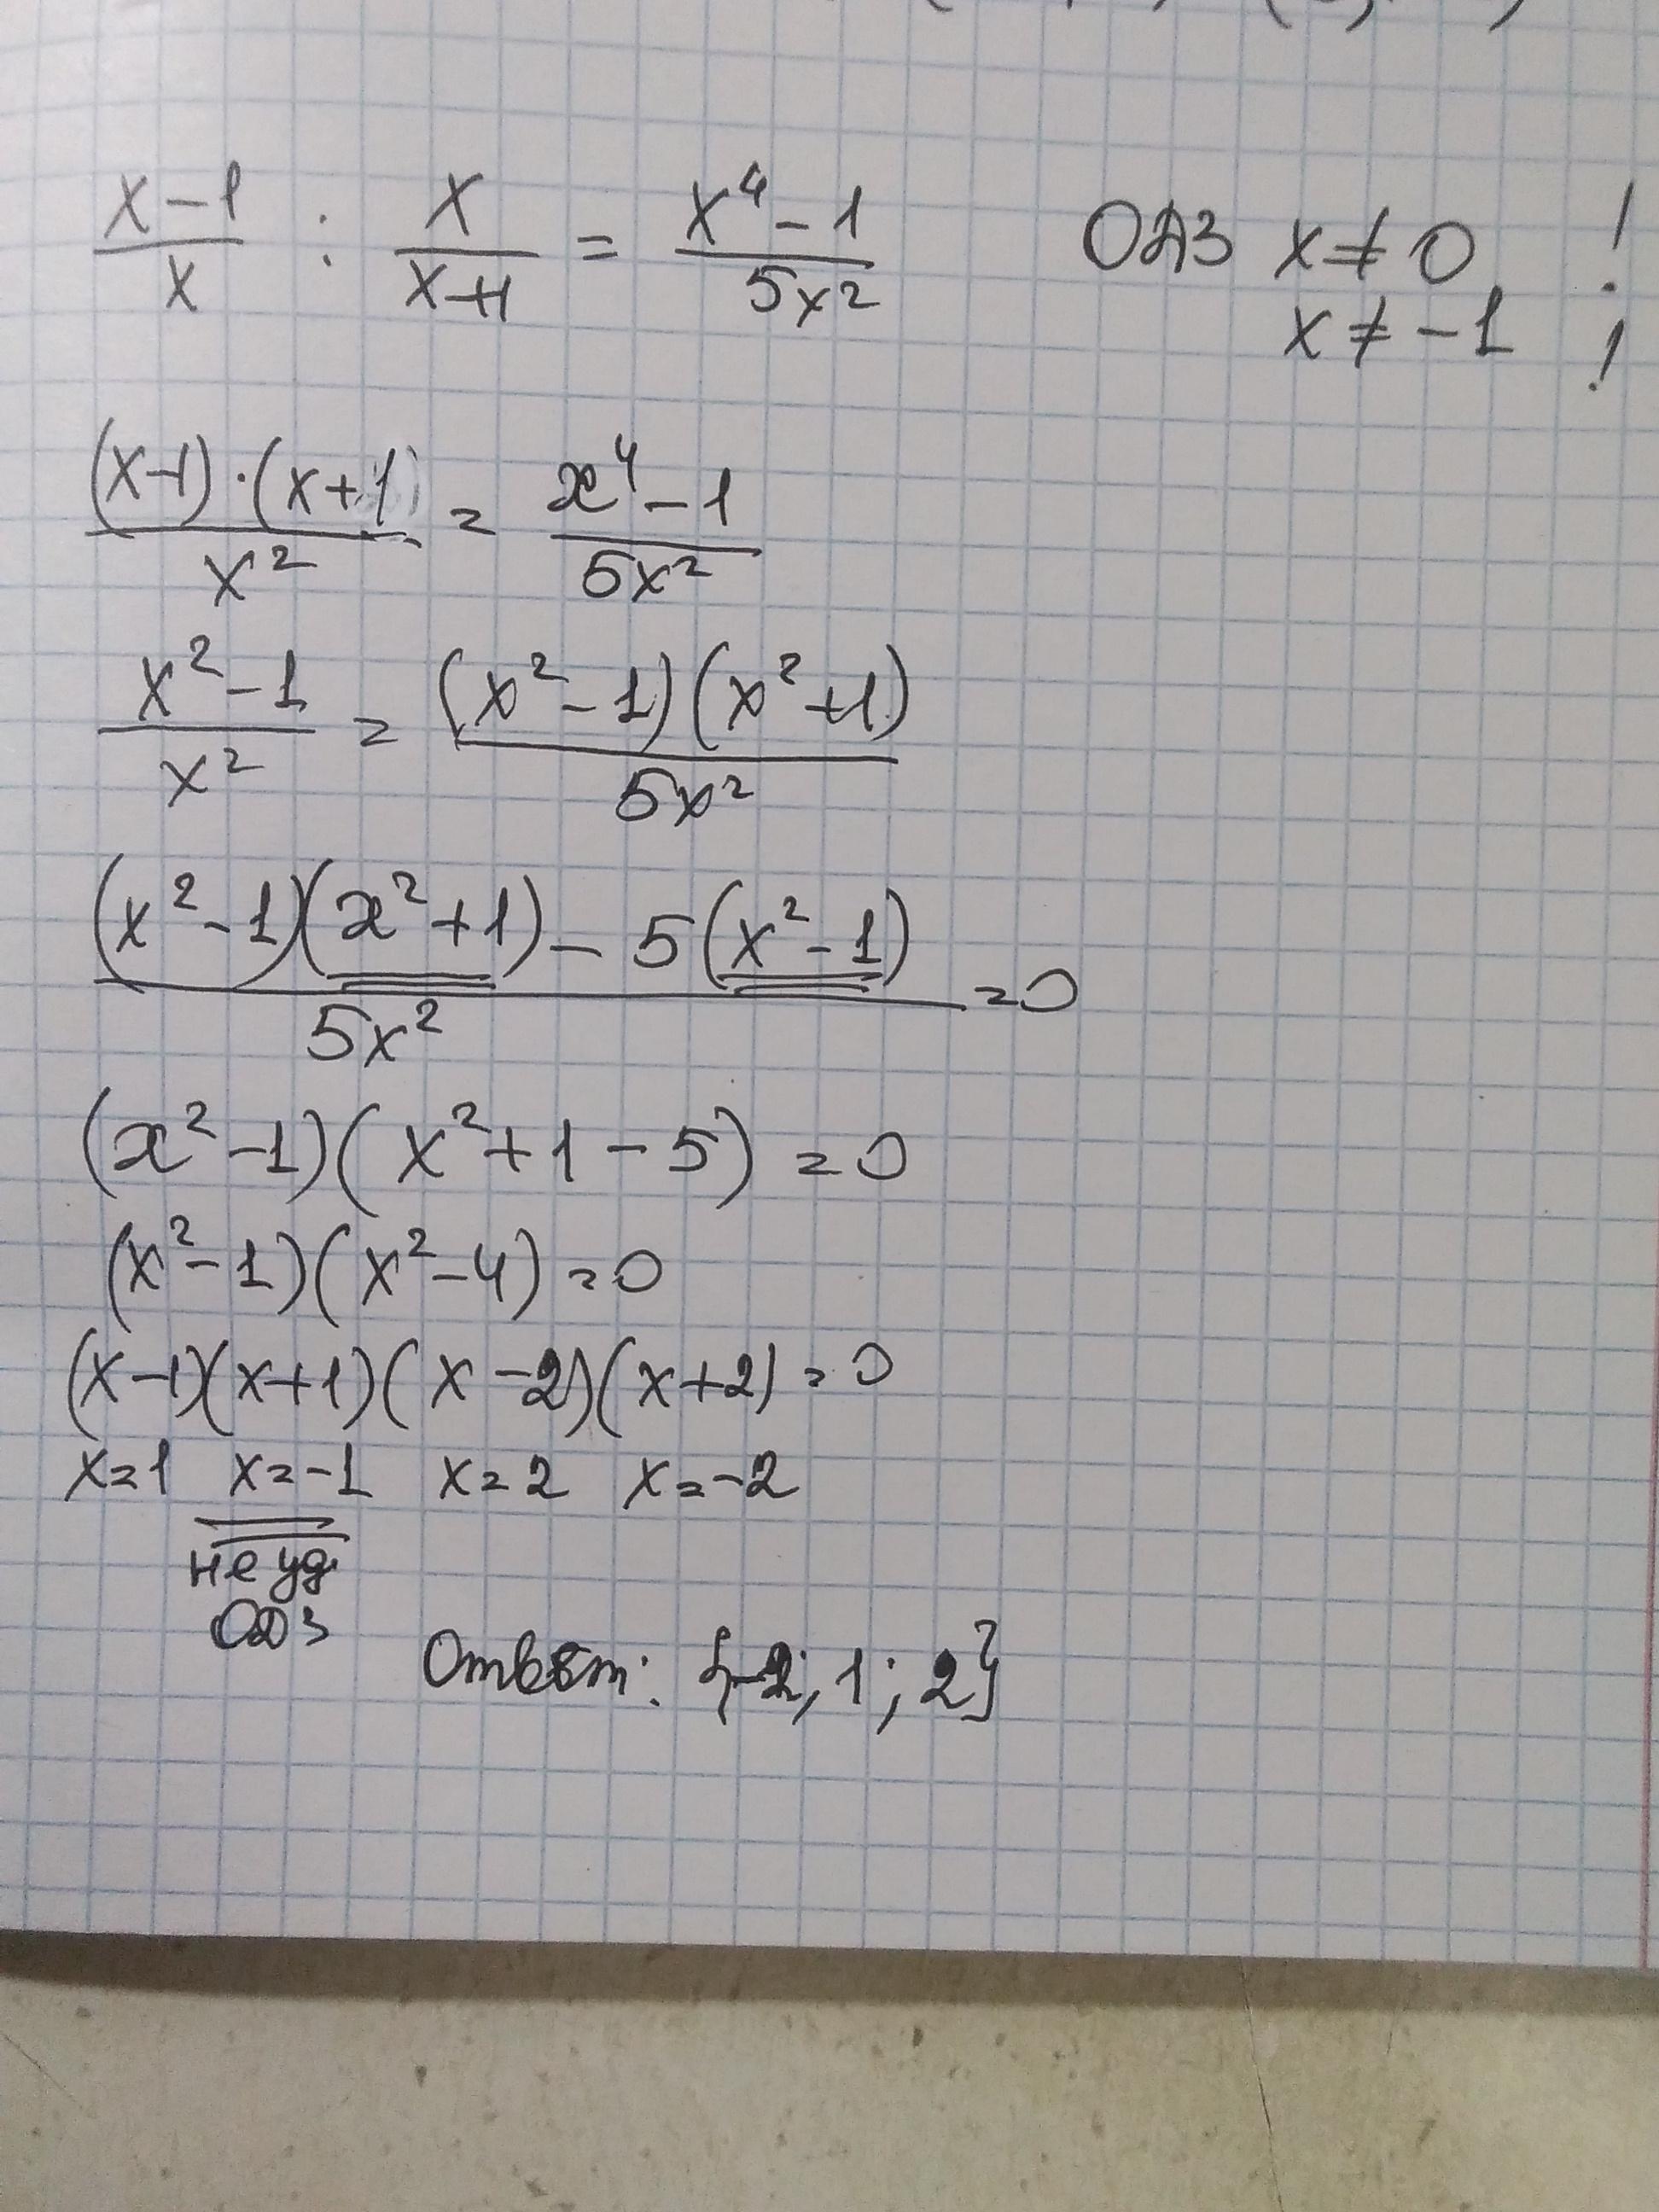 (x-1)/x : x/(x+1) = (x⁴-1)/(5x²) ОДЗ x≠0 !
x≠-1 !
((x-1)·(x+1))/x² = (x⁴-1)/(5x²)
(x²-1)/x² = ((x²-1)(x²+1))/(5x²)
((x²-1)(x²+1)-5(x²-1))/(5x²) =0
(x²-1)(x²+1-5)=0
(x²-1)(x²-4)=0
(x-1)(x+1)(x-2)(x+2)=0
x=1 x=-1 x=2 x=-2
не уд
ОДЗ
Ответ: {-2; 1; 2}